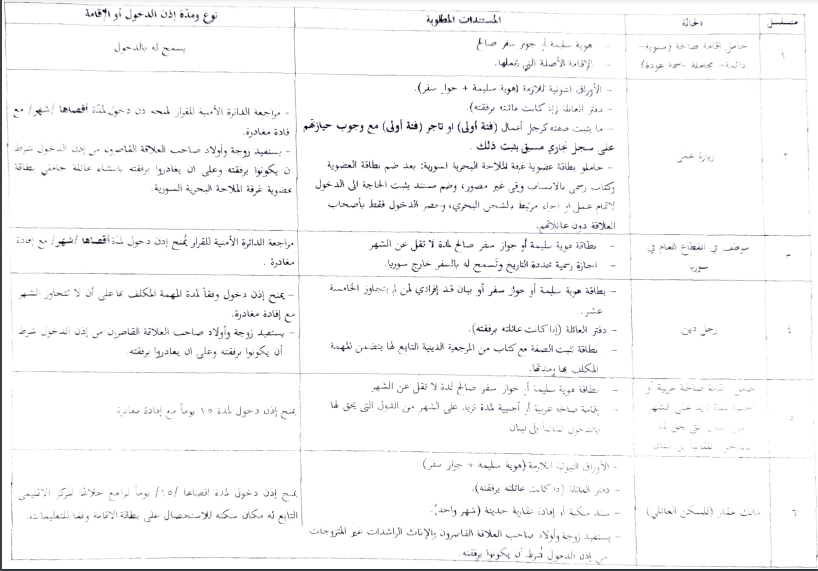 متسلسل
الحالة
المستندات المطلوبة
نوع ومدة إذن الدخول أو الإقامة
١
حامل إقامة صالحة (سنوية-
دائمة- مجاملة -سمة عودة)
- هوية سليمة أو جواز سفر صالح
- الإقامة الأصلية التي يحملها.
يسمح له بالدخول
زيارة عمل
- الأوراق الثبوتية اللازمة (هوية سليمة + جواز سفر).
- دفتر العائلة (إذا كانت عائلته برفقته).
- ما يثبت صفته كرجل أعمال (فئة أولى) او تاجر (فئة أولى) مع وجوب حيازتهم
على سجل تجاري مسبق يثبت ذلك .
- حاملو بطاقة عضوية غرفة الملاحة البحرية السورية: بعد ضم بطاقة العضوية
وكتاب رسمي بالانتساب وقي غير مصور، وضم مستند يثبت الحاجة الى الدخول
لاتمام عمل او اجراء مرتبط بالشحن البحري، وحصر الدخول فقط بأصحاب
العلاقة دون عائلاتهم.
- مراجعة الدائرة الأمنية للقرار لمنحه إذن دخول لمدة أقصاها /شهر/ مع
إفادة مغادرة.
- يستفيد زوجة وأولاد صاحب العلاقة القاصرون من إذن الدخول شرط
ان يكونوا برفقته وعلى ان يغادروا برفقته باستثناء عائلة حاملي بطاقة
عضوية غرفة الملاحة البحرية السورية.
موظف في القطاع العام في
سوريا
- بطاقة هوية سليمة أو جواز سفر صالح لمدة لا تقل عن الشهر
- اجازة رسمية محددة التاريخ وتسمح له بالسفر خارج سوريا.
مراجعة الدائرة الأمنية للقرار يُمنح إذن دخول لمدة أقصاها /شهر/ مع إفادة
مغادرة .
٤
رجل دين
- بطاقة هوية سليمة أو جواز سفر أو بيان قيد إفرادي لمن لم يتجاوز الخامسة
عشر.
- دفتر العائلة (إذا كانت عائلته برفقته).
- بطاقة تثبت الصفة مع كتاب من المرجعية الدينية التابع لها يتضمن المهمة
المكلف بها ومدتها.
- يمنح إذن دخول وفقاً لمدة المهمة المكلف بها على أن لا تتجاوز الشهر
مع إفادة مغادرة.
- يستفيد زوجة وأولاد صاحب العلاقة القاصرون من إذن الدخول شرط
أن يكونوا برفقته وعلى ان يغادروا برفقته.
٥
حامل إقامة صالحة عربية أو
- بطاقة هوية سليمة أو جواز سفر صالح لمدة لا تقل عن الشهر
- إقامة صالحة عربية أو أجنبية لمدة تزيد على الشهر من الدول التي يحق لها
بالدخول تلقائياً إلى لبنان
يمنح إذن دخول لمدة ١٥ يوماً مع إفادة مغادرة
٦
مالك عقار (للمسكن العائلي)
- الأوراق الثبوتية اللازمة (هوية سليمة + جواز سفر)
- دفتر العائلة (إذا كانت عائلته برفقته).
- سند ملكية أو إفادة عقارية حديثة (شهر واحد).
- يستفيد زوجة وأولاد صاحب العلاقة القاصرون والإناث الراشدات غير المتزوجات
من إذن الدخول شرط أن يكونوا برفقته.
يمنح إذن دخول لمدة اقصاها /١٥/ يوماً يراجع خلالها المركز الاقليمي
التابع له مكان سكنه للاستحصال على بطاقة الاقامة وفقا للتعليمات.